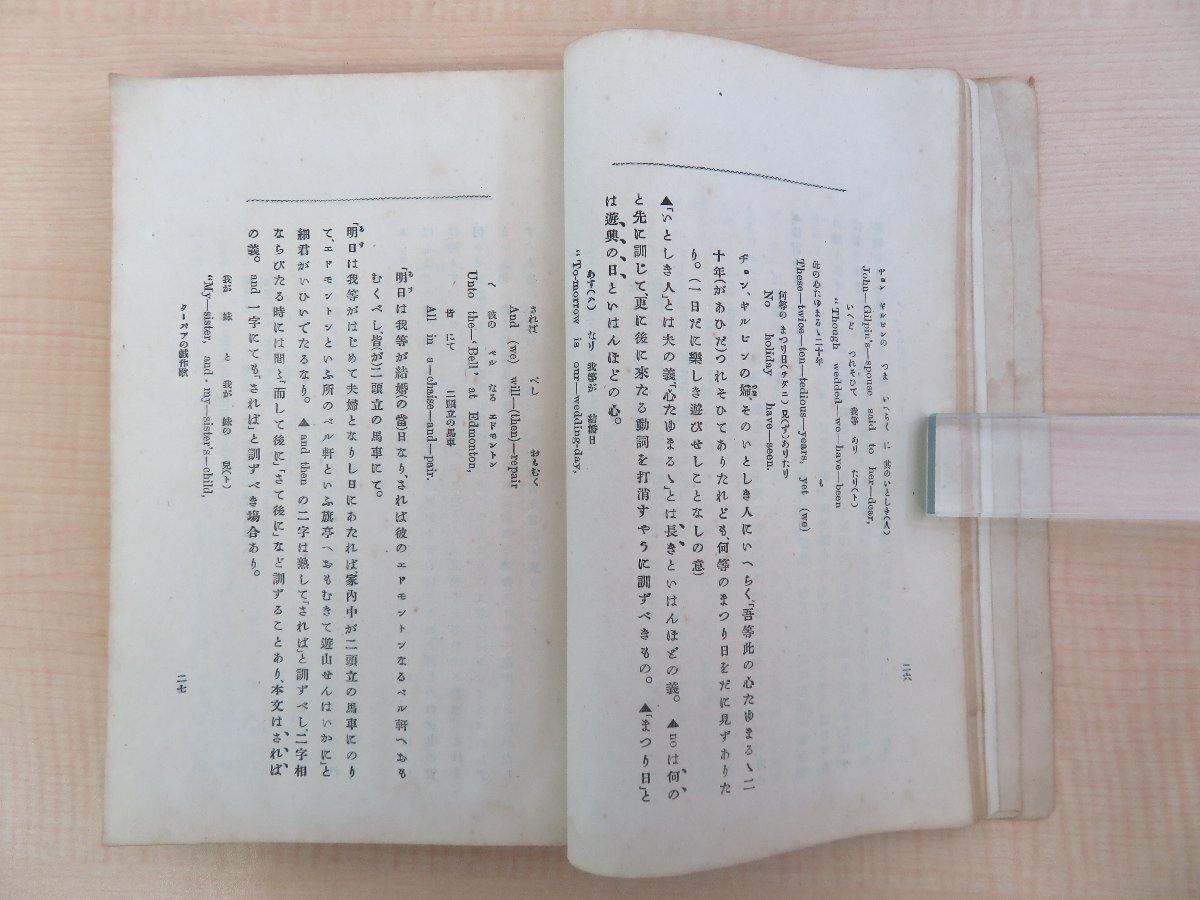 John—Gilpin's—spouse said to her—dear,
"Though wedded—we—have—been
These—twice—ten—tedious—years, yet (we)
No holiday have—seen.
ヂョン、ギルピンの婦、そのいとしき人にいへらく、「吾等此の心たゆまるゝ二
十年(があひだ)つれそひてありたれども、何等のまつり日をだに見ずありた
り。(一日だに樂しき遊びせしことなしの意)
▲「いとしき人」とは夫の義「心たゆまるゝ」とは長きといはんほどの義。 ▲noは何の
と先に訓じて、更に後に來たる動詞を打消すやうに訓ずべきもの。 ▲「まつり日」と
は遊興の日といはんほどの心。
あす(ハ) なり 我等が 結婚日
"To-morrow is our—wedding-day,
二六
されば べし おもむく
And (we) will—(then)—repair
へ 彼の ベル なる エドモントン
Unto the—'Bell' at Edmonton,
皆 にて 二頭立の馬車
All in a—chaise—and—pair.
「明日は我等が結婚(の當)日なり、されば彼のエドモントンなるベル軒へおも
むくべし、皆(が)二頭立の馬車にて。
「明日は我等がはじめて夫婦となりし日にあたれば、家内中が二頭立の馬車にのり
て、エドモントンといふ所のベル軒といふ旗亭へおもむきて遊山せんはいかに」と
細君がいひいでたるなり。 ▲and then の二字は熟して「されば」と訓ずべし、二字相
ならびたる時には間々「而して後に」「さて後に」など訓ずることあり、本文は、されば
の義。and 一字にても「されば」と訓ずべき場合あり。
我が 妹 と 我が 妹の 兒(ト)
"My—sister, and-my—sister's—child,
クーパアの戯作歌
二七